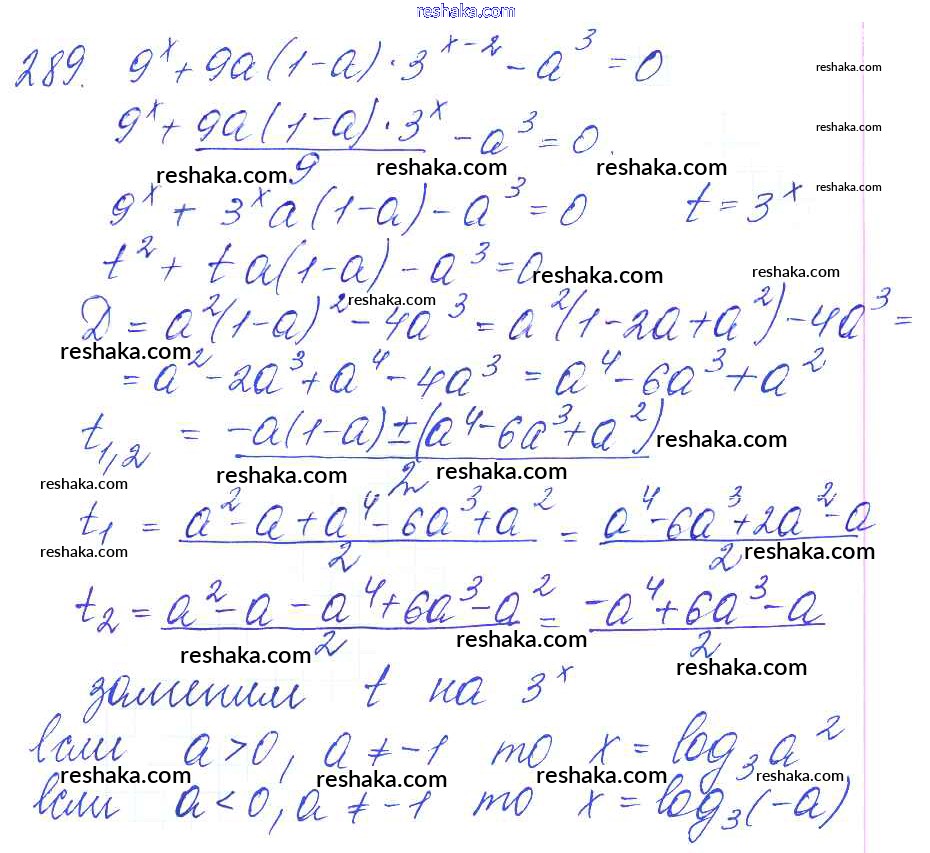 reshaka.com
289. 9^x + 9a(1-a)·3^(x-2) - a^3 = 0
reshaka.com
9^x + 9a(1-a)·3^x / 9 - a^3 = 0.
reshaka.com
reshaka.com reshaka.com
9^x + 3^x a(1-a) - a^3 = 0 t = 3^x
reshaka.com
t^2 + t a(1-a) - a^3 = 0
reshaka.com reshaka.com
Д = a^2(1-a)^2 - 4a^3 = a^2(1-2a+a^2) - 4a^3 =
reshaka.com
reshaka.com
= a^2 - 2a^3 + a^4 - 4a^3 = a^4 - 6a^3 + a^2
t_1,2 = (-a(1-a) ± (a^4 - 6a^3 + a^2)) / 2
reshaka.com
reshaka.com reshaka.com reshaka.com
t_1 = (a^2 - a + a^4 - 6a^3 + a^2) / 2 = (a^4 - 6a^3 + 2a^2 - a) / 2
reshaka.com reshaka.com
t_2 = (a^2 - a - a^4 + 6a^3 - a^2) / 2 = (-a^4 + 6a^3 - a) / 2
reshaka.com reshaka.com reshaka.com
заменим t на 3^x
если a > 0, a ≠ -1 то x = log_3 a^2
reshaka.com reshaka.com reshaka.com reshaka.com
если a < 0, a ≠ -1 то x = log_3(-a)